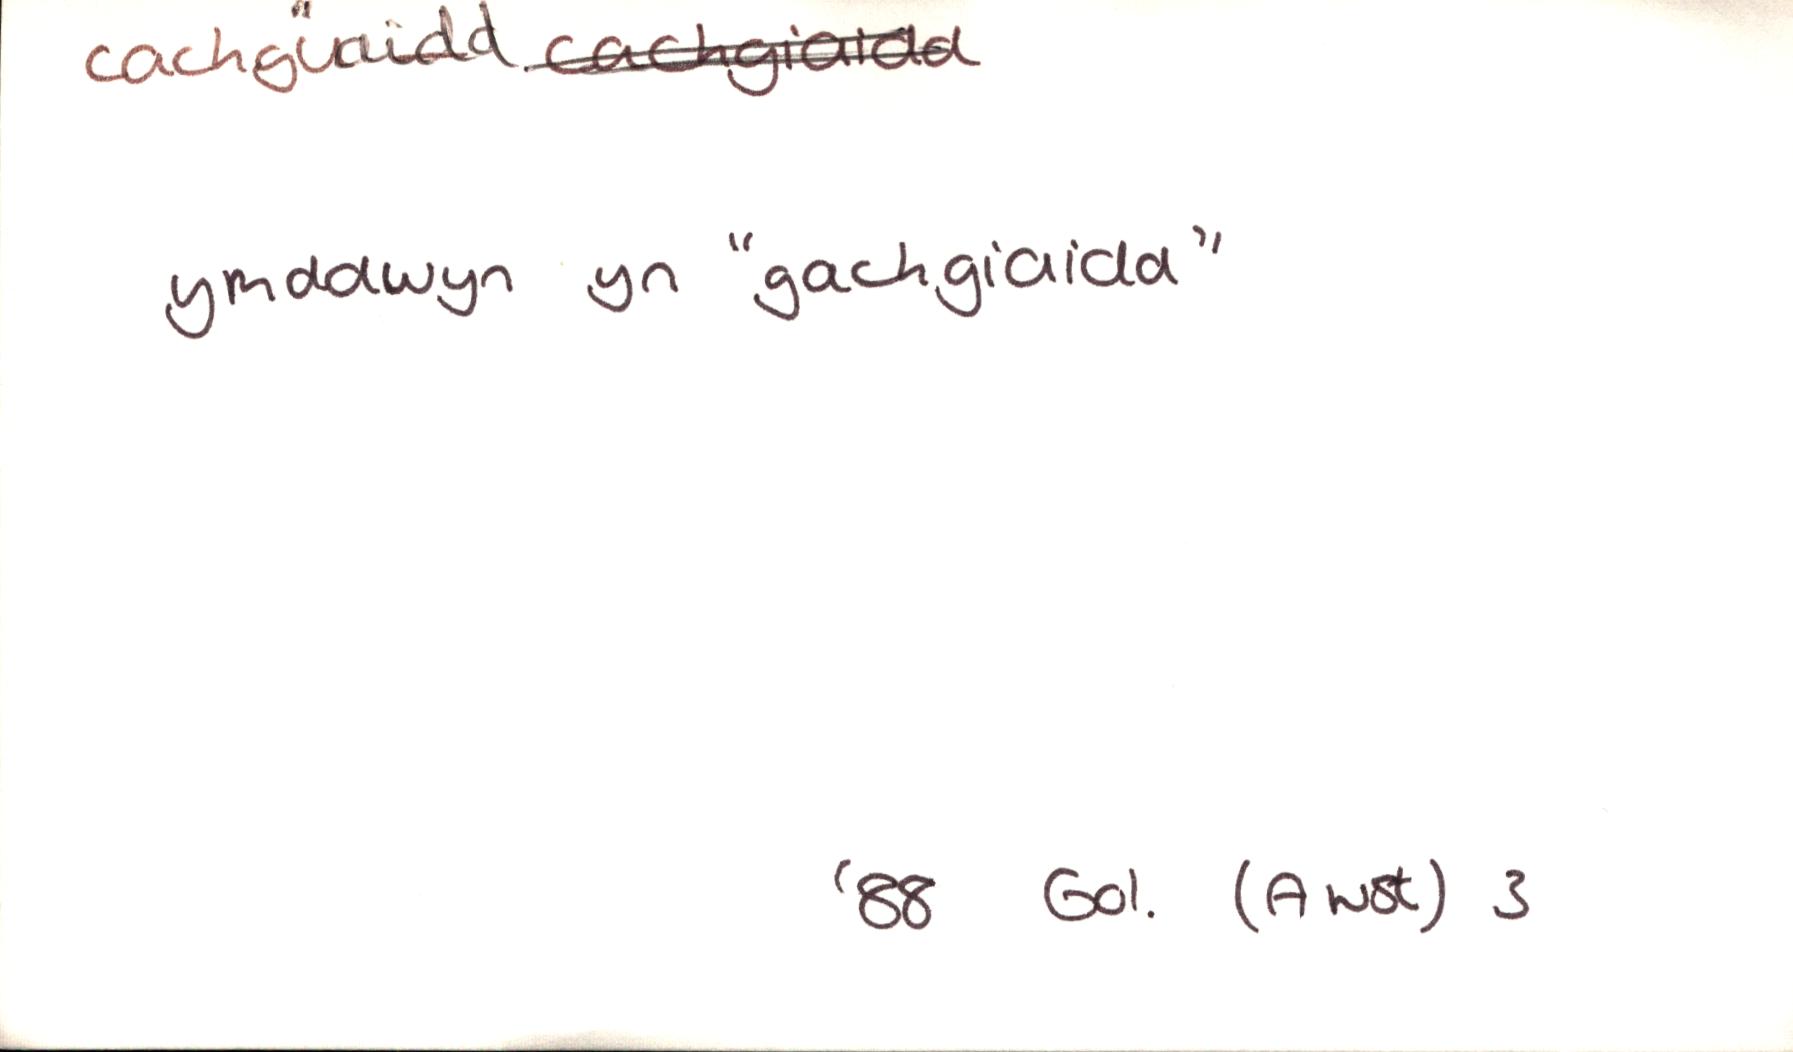 cachgïaidd cachgiaidd
ymddwyn yn “gachgiaidd”
'88 Gol. (Awst) 3